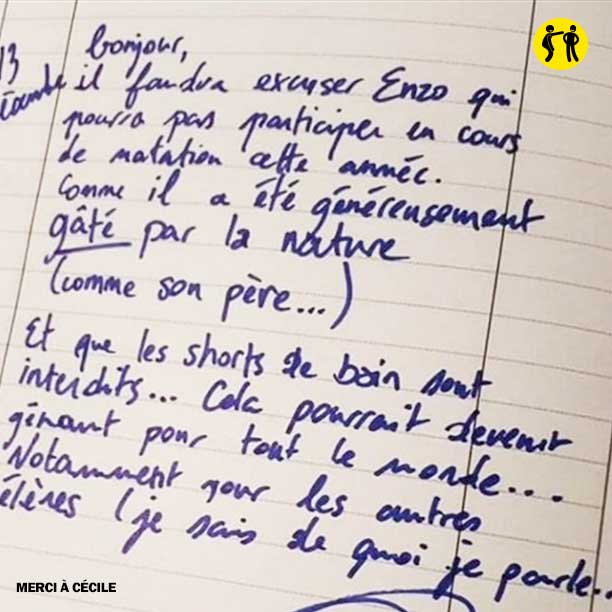 bonjour,
13
il faudra excuser Enzo qui
pourra pas participer en cours
de natation cette année.
Comme il a été généreusement
gâté par la nature
(comme son père...)
Et que les shorts de bain sont
interdits... Cela pourrait devenir
gênant pour tout le monde....
Notamment pour les autres
élèves (je sais de quoi je parle..
MERCI À CÉCILE